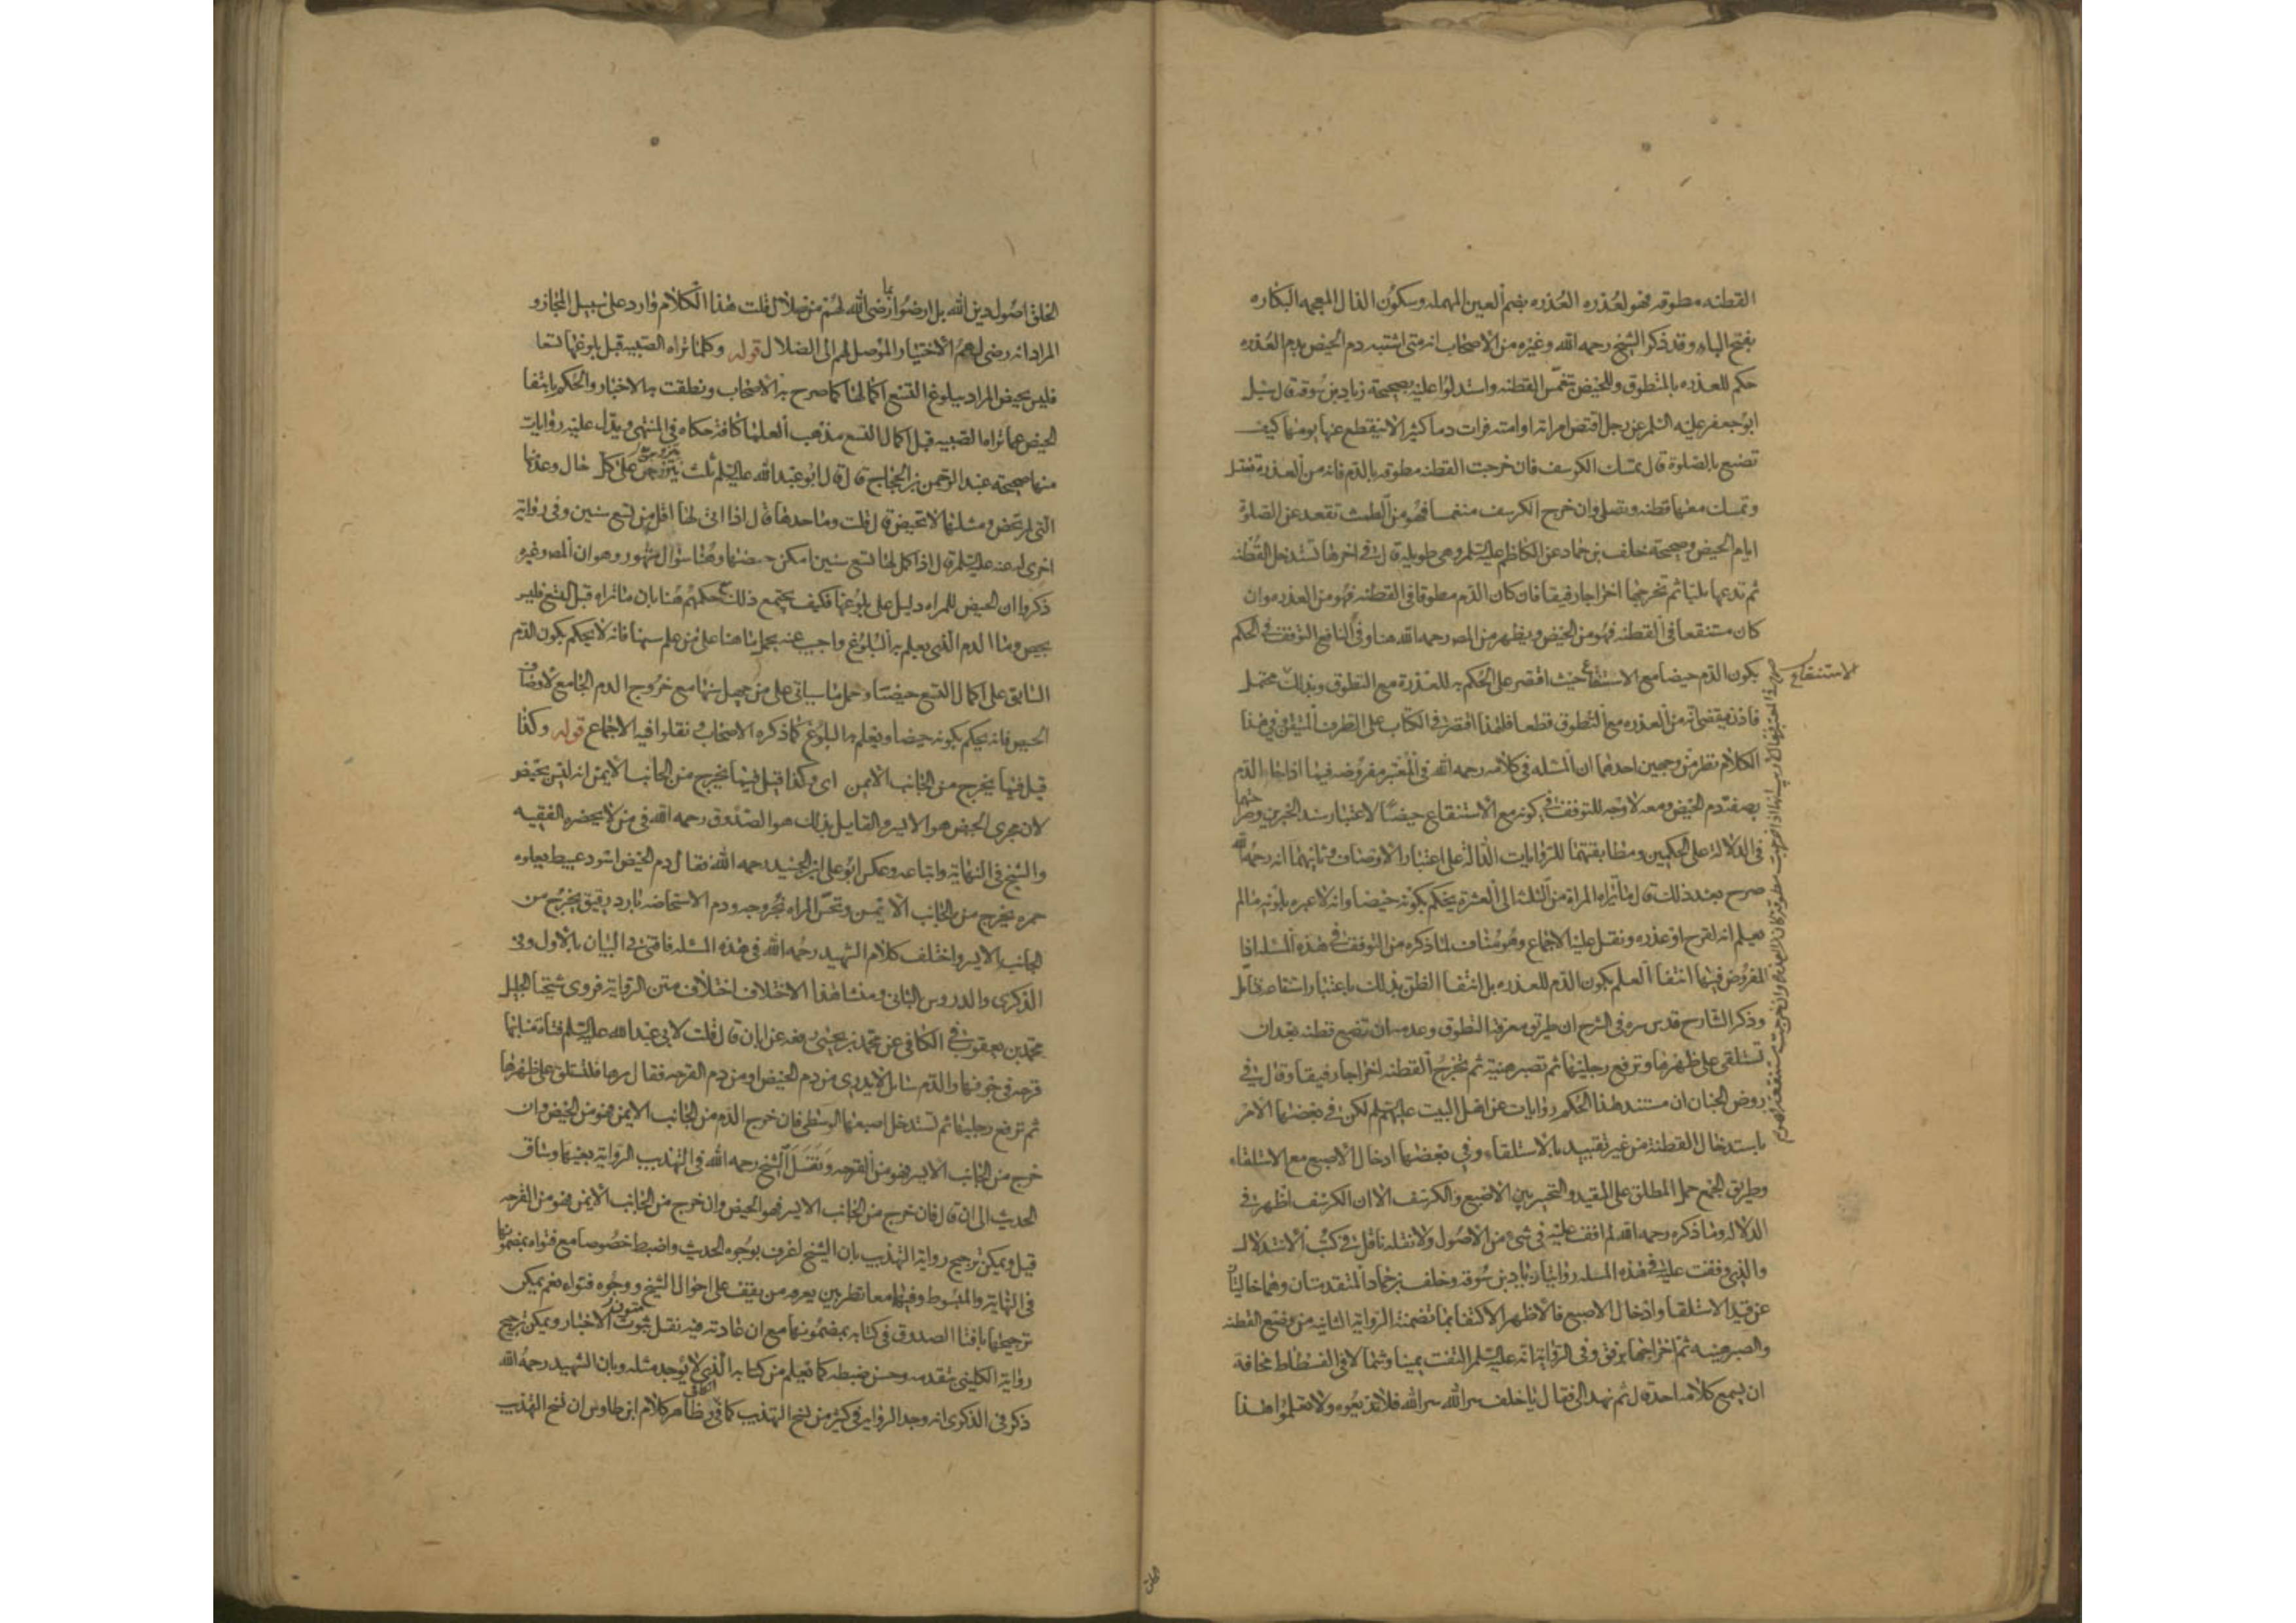 القطنه مطوقه فهو لعذره العذره بضم العين المهمله وسكون الذال المعجمه البكاره
بفتح الباء وقد ذكر الشيخ رحمه الله وغيره من الاصحاب انه متى اشتبه دم الحيض بدم العذره
حكم للعذره بالتطوق وللحيض بتغمس القطنه واستدلوا عليه بصحيحة زياد بن سوقة قال سئل
ابو جعفر عليه السلم عن رجل اقتض امراته او امته فرات دما كثيرا لا ينقطع عنها يومها كيف
تصنع بالصلوة قال تمسك الكرسف فان خرجت القطنه مطوقه بالدم فانه من العذرة تغتسل
وتمسك معها قطنه وتصلى وان خرج الكرسف منغمسا فهو من الطمث تقعد عن الصلوة
ايام الحيض وصحيحة خلف بن حماد عن الكاظم عليه السلم وهى طويلة قال فى اخرها تستدخل القطنه
ثم تدعها مليا ثم تخرجها اخراجا رفيقا فان كان الدم مطوقا فى القطنه فهو من العذره وان
كان مستنقعا فى القطنه فهو من الحيض ويظهر من المصه رحمه الله هنا وفى النافع التوقف فى الحكم
بكون الدم حيضا مع الاستنقاع حيث اقتصر على الحكم به للعذرة مع التطوق وبذلك محتمل
الاستنقاع
فاذن يقضى انه من العذره مع التطوق قطعا فلهذا اقتصر فى الكتاب على الطرف المتيقن وفى هذا
الكلام نظر من وجهين احدهما ان المسئله فى كلامه رحمه الله فى المعتبر مفروضه فيما اذا جاء الدم
بصفة دم الحيض ومعه لا وجه للتوقف فى كونه مع الاستنقاع حيضا لاعتبار سند الخبرين وصراحتهما
فى الدلالة على الحكمين ومطابقتهما للروايات الدالة على اعتبار الاوصاف وثانيهما انه رحمه الله
صرح بعد ذلك قال ما تراه المراة من الثلثه الى العشرة يحكم بكونه حيضا وانه لا عبره بلونه ما لم
يعلم انه لقرح او عذره ونقل عليه الاجماع وهو مناف لما ذكره من التوقف فى هذه المسئله اذا
المفروض فيها انتفا العلم بكون الدم للعذره بل انتفا الظن بذلك باعتبار استنقاعه فتامل
وذكر الشارح قدس سره فى الشرح ان طريق معرفة التطوق وعدمه ان تضع قطنه بعد ان
تستلقى على ظهرها وترفع رجليها ثم تصبر هنيئة ثم تخرج القطنه اخراجا رفيقا وقال فى
روض الجنان ان مستند هذا الحكم روايات عن اهل البيت عليهم السلم لكن فى بعضها الامر
باستدخال القطنة من غير تقييد بالاستلقاء وفى بعضها ادخال الاصبع مع الاستلقاء
وطريق الجمع حمل المطلق على المقيد والتخيير بين الاصبع والكرسف الا ان الكرسف اظهر فى
الدلاله وما ذكره رحمه الله لم اقف عليه فى شىء من الاصول ولا نقله ناقل فى كتب الاستدلال
والذى وقفت عليه فى هذه المسئله روايتا زياد بن سوقة وخلف بن حماد المتقدمتان وهما خاليتان
عن قيد الاستلقا وادخال الاصبع فالاظهر الاكتفا بما تضمنته الرواية الثانيه من وضع القطنه
والصبر هنيئه ثم اخراجها برفق وفى الرواية انه عليه السلم التفت يمينا وشمالا فى الفسطاط مخافة
ان يسمع كلامه احد قال ثم نهد الى فقال يا خلف سر الله سر الله فلا تذيعوه ولا تعلموا هذا
الخلق
الخلق اصول دين الله بل ارضوا بما رضى الله لهم من ضلال قلت هذا الكلام وارد على سبيل المجاز و
المراد انه رضى لهم الاختيار الموصل لهم الى الضلال قوله وكلما تراه الصبيه قبل بلوغها تسعا
فليس بحيض المراد ببلوغ التسع اكمالها كما صرح به الاصحاب ونطقت به الاخبار والحكم بانتفا
الحيض عما تراه الصبيه قبل اكمال التسع مذهب العلما كافة حكاه فى المنتهى ويدل عليه روايات
منها صحيحة عبد الرحمن بن الحجاج قال قال ابو عبد الله عليه السلم ثلث يتزوجن على كل حال وعد منها
التى لم تحض ومثلها لا تحيض قال قلت وما حدها قال اذا اتى لها اقل من تسع سنين وفى رواية
اخرى له عنه عليه السلم قال اذا كمل لها تسع سنين امكن حيضها وهنا سؤال مشهور وهو ان المصه وغيره
ذكروا ان الحيض للمراه دليل على بلوغها فكيف يجتمع ذلك مع حكمهم هنا بان ما تراه قبل التسع فليس
بحيض وما الدم الذى يعلم به البلوغ واجيب عنه بحمل ما هنا على من علم سنها فانه لا يحكم بكون الدم
السابق على اكمال التسع حيضا وحمل ما سياتى على من جهل سنها مع خروج الدم الجامع لاوصاف
الحيض فانه يحكم بكونه حيضا ويعلم به البلوغ كما ذكره الاصحاب ونقلوا فيه الاجماع قوله وكذا
قيل فيما يخرج من الجانب الايمن اى وكذا قيل فيما يخرج من الجانب الايمن انه ليس بحيض
لان مجرى الحيض هو الايسر والقايل بذلك هو الصدوق رحمه الله فى من لا يحضره الفقيه
والشيخ فى النهاية واتباعه وعكس ابو على ابن الجنيد رحمه الله فقال دم الحيض اسود عبيط يعلوه
حمره يخرج من الجانب الايمن وتحس المراه بخروجه ودم الاستحاضه بارد رقيق يخرج من
الجانب الايسر واختلف كلام الشهيد رحمه الله فى هذه المسئله فافتى فى البيان بالاول وفى
الذكرى والدروس الثانى ومنشا هذا الاختلاف اختلاف متن الرواية فروى شيخنا الجليل
محمد بن يعقوب فى الكافى عن محمد بن يحيى رفعه عن ابان قال قلت لابى عبد الله عليه السلم فتاة منا بها
قرحه فى جوفها والدم سايل لا يدرى من دم الحيض او من دم القرحه فقال مرها فلتستلق على ظهرها
ثم ترفع رجليها ثم تستدخل اصبعها الوسطى فان خرج الدم من الجانب الايمن فهو من الحيض وان
خرج من الجانب الايسر فهو من القرحه ونقل الشيخ رحمه الله فى التهذيب الرواية بعينها وساق
الحديث الى ان قال فان خرج من الجانب الايسر فهو الحيض وان خرج من الجانب الايمن فهو من القرحه
قيل ويمكن ترجيح رواية التهذيب بان الشيخ اعرف بوجوه الحديث واضبط خصوصا مع فتواه بمضمونها
فى النهاية والمبسوط وفيهما معا نظر بين يعرفه من يقف على احوال الشيخ ووجوه فتواه نعم يمكن
ترجيحها بافتا الصدوق فى كتابه بمضمونها مع ان عادته فيه نقل متون الاخبار ويمكن ترجيح
رواية الكلينى بتقدمه وحسن ضبطه كما يعلم من كتابه الذى لا يوجد مثله وبان الشهيد رحمه الله
ذكر فى الذكرى انه وجد الرواية فى كثير من نسخ التهذيب كما فى الكافى وظاهر كلام ابن طاوس ان نسخ التهذيب